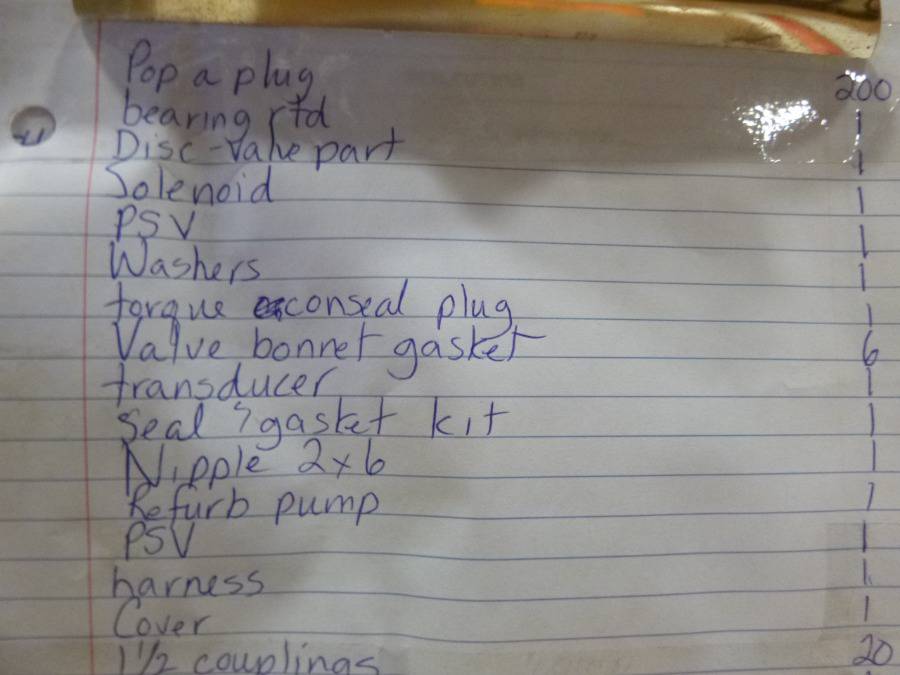 Pop a plug 200
bearing rtd 1
Disc-Valve part 1
Solenoid 1
PSV 1
Washers 1
torque conseal plug 1
Valve bonnet gasket 6
transducer 1
Seal & gasket kit 1
Nipple 2x6 1
Refurb pump 1
PSV 1
harness 1
Cover 1
1 1/2 couplings 20